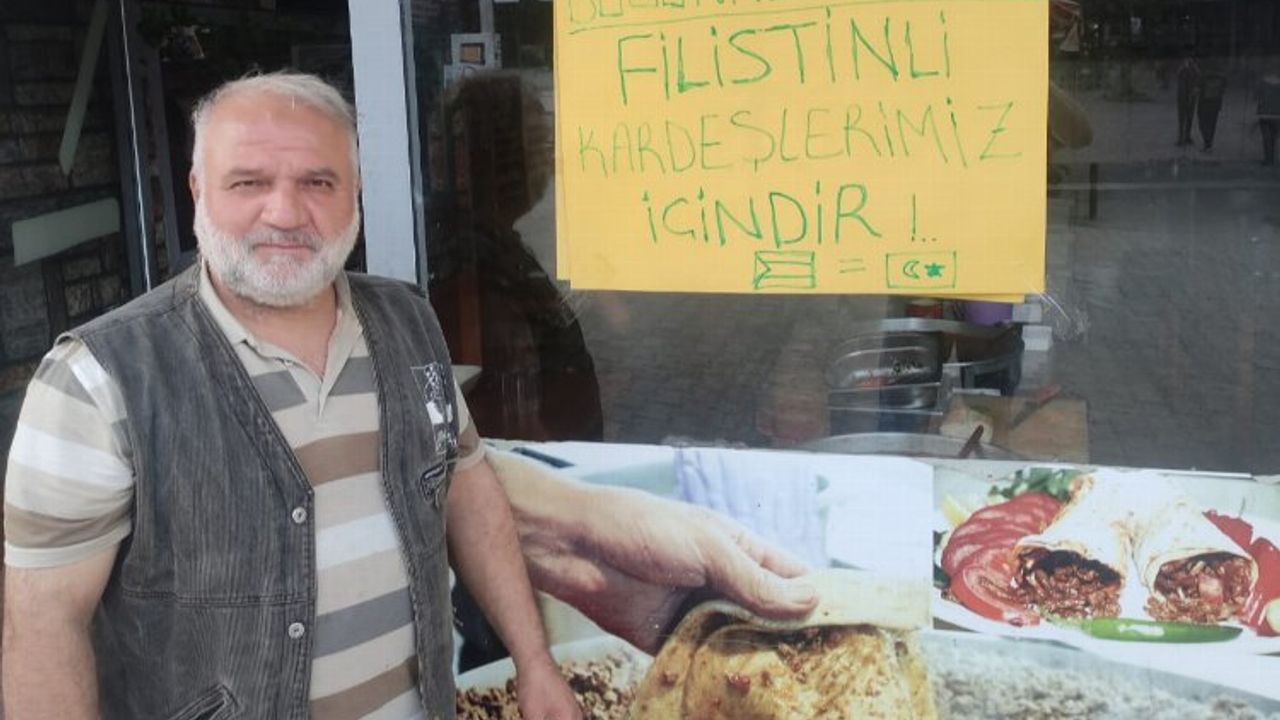 FİLİSTİNLİ
KARDEŞLERİMİZ
İÇİNDİR !..
=